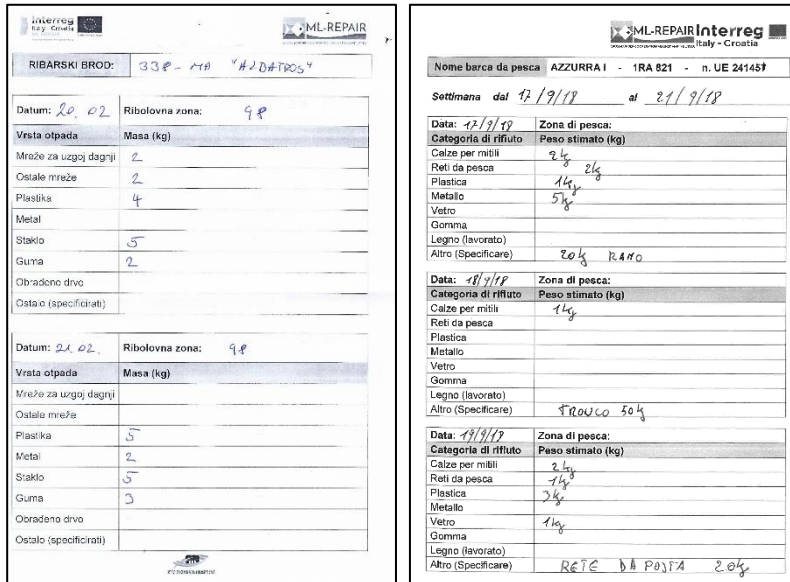 Interreg
Italy - Croatia
ML-REPAIR
RIBARSKI BROD: 338 - MA "ALBATROS"
Datum: 20. 02 Ribolovna zona: 9 8
Vrsta otpada Masa (kg)
Mreže za uzgoj dagnji 2
Ostale mreže 2
Plastika 4
Metal
Staklo 5
Guma 2
Obrađeno drvo
Ostalo (specificirati)
Datum: 21. 02. Ribolovna zona: 9 8
Vrsta otpada Masa (kg)
Mreže za uzgoj dagnji
Ostale mreže
Plastika 5
Metal 2
Staklo 5
Guma 3
Obrađeno drvo
Ostalo (specificirati)
ML-REPAIR Interreg
Italy - Croatia
Nome barca da pesca AZZURRA I - 1RA 821 - n. UE 24145
Settimana dal 17/9/18 al 21/9/18
Data: 17/9/18 Zona di pesca:
Categoria di rifiuto Peso stimato (kg)
Calze per mitili 2 kg
Reti da pesca 2 kg
Plastica 1 kg
Metallo 5 kg
Vetro
Gomma
Legno (lavorato)
Altro (Specificare) 20 kg RAMO
Data: 18/9/18 Zona di pesca:
Categoria di rifiuto Peso stimato (kg)
Calze per mitili 1 kg
Reti da pesca
Plastica
Metallo
Vetro
Gomma
Legno (lavorato)
Altro (Specificare) TRONCO 50 kg
Data: 19/9/18 Zona di pesca:
Categoria di rifiuto Peso stimato (kg)
Calze per mitili 2 kg
Reti da pesca 1 kg
Plastica 3 kg
Metallo
Vetro 1 kg
Gomma
Legno (lavorato)
Altro (Specificare) RETE DA POSTA 20 kg